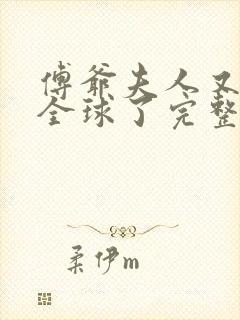 傅爺夫人又
全球了完整
柔伊m